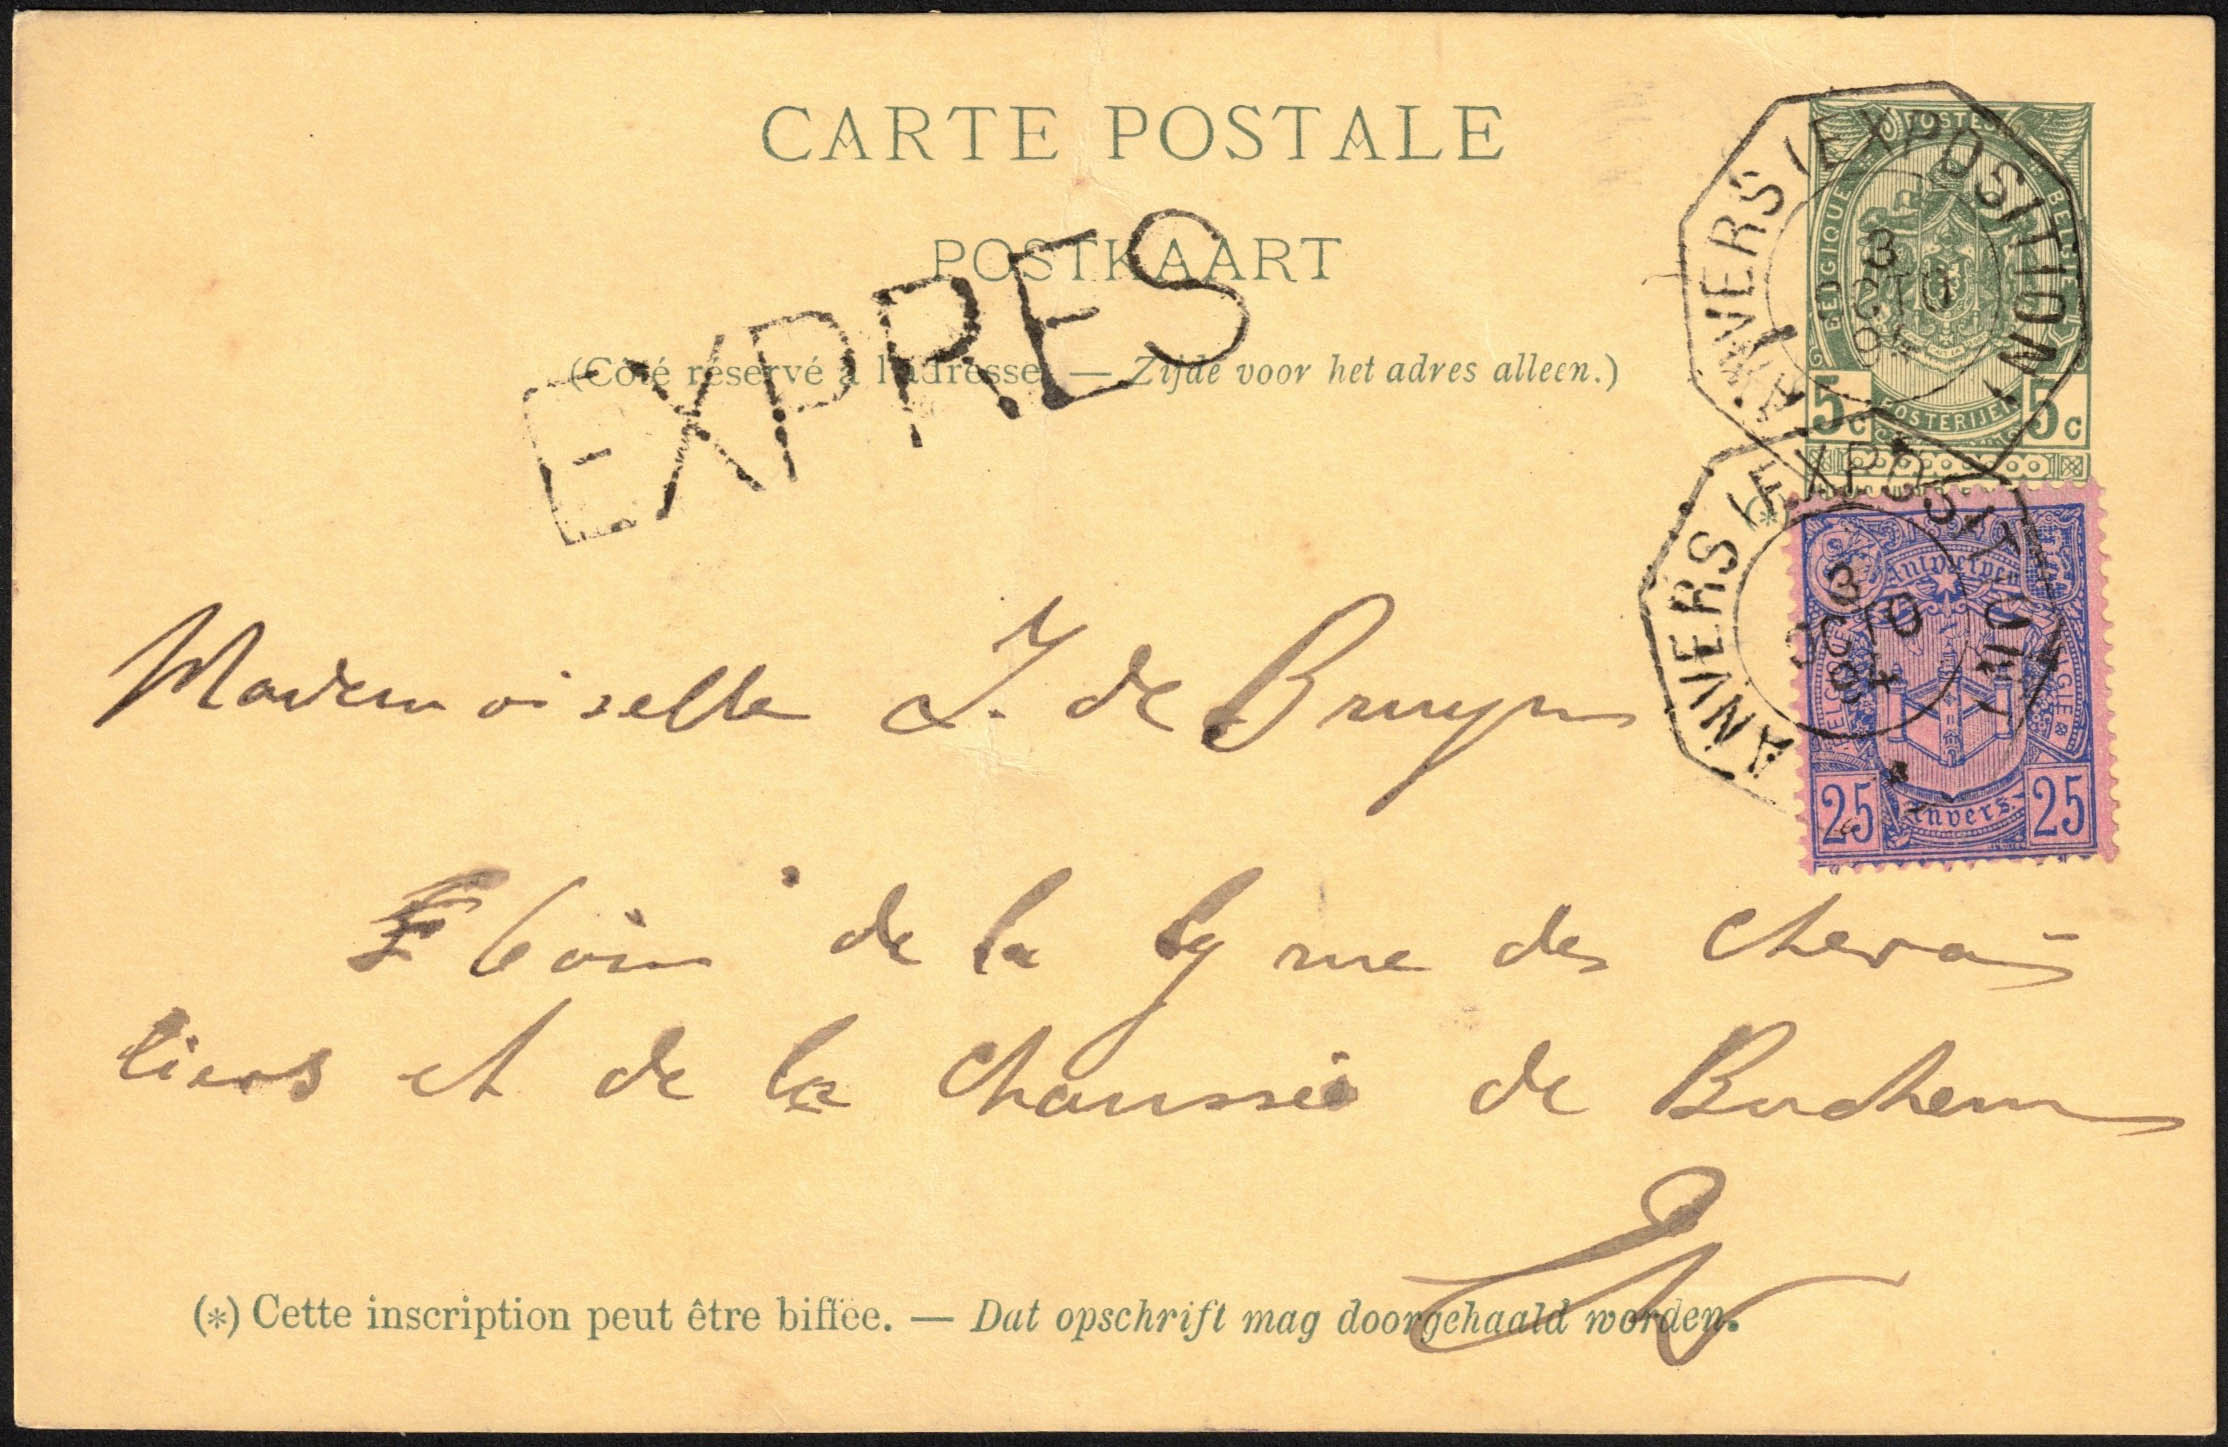 CARTE POSTALE
POSTKAART
(Côté réservé à l'adresse. — Zijde voor het adres alleen.)
EXPRES
ANVERS (EXPOSITION)
3 OCTO 94
POSTES
BELGIQUE BELGIË
POSTERIJEN
5c 5c
ANVERS (EXPOSITION)
3 OCTO 94
1894
Antwerpen
BELGIQUE BELGIE
Anvers
25 25
(*)
Mademoiselle J. de Bruyn
Coin de la rue des Cheva-
liers et de la Chaussée de Berchem
(*) Cette inscription peut être biffée. — Dat opschrift mag doorgehaald worden.